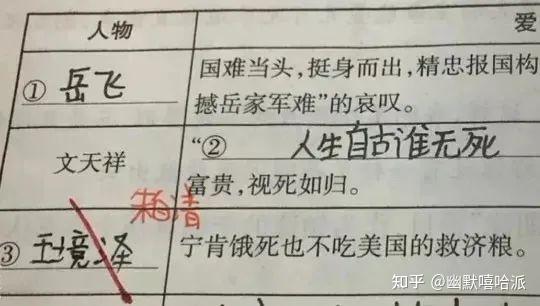 人物
爱
① 岳飞
国难当头，挺身而出，精忠报国构
撼岳家军难”的哀叹。
文天祥
“② 人生自古谁无死
富贵，视死如归。
朱自清
③ 王境泽
宁肯饿死也不吃美国的救济粮。
知乎 @幽默嘻哈派